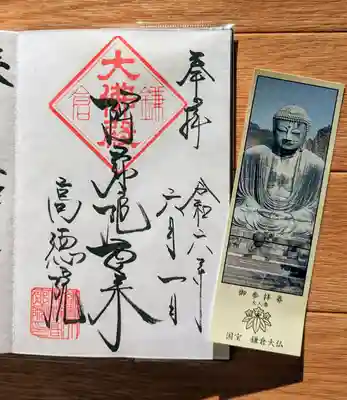 奉拝
令和六年
六月一日
鎌倉
大佛殿
阿弥陀如来
高徳院
御参拝券
国宝 鎌倉大仏